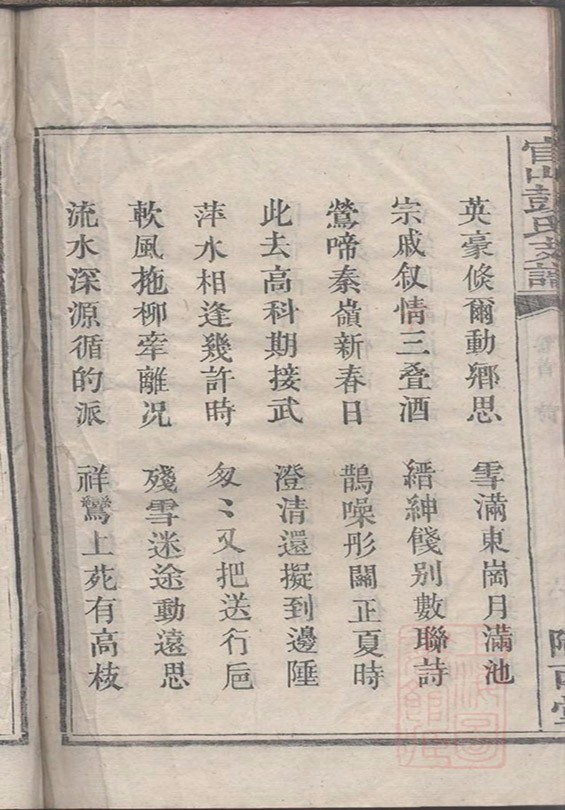 官山彭氏支譜
英豪倐爾動鄉思 雪滿東崗月滿池
宗戚叙情三叠酒 縉紳餞别數聯詩
鶯啼秦嶺新春日 鵲噪彤關正夏時
此去高科期接武 澄清還擬到邊陲
萍水相逢幾許時 匆〻又把送行卮
軟風拖柳牽離况 殘雪迷途動遠思
流水深源循的派 祥鸞上苑有高枝